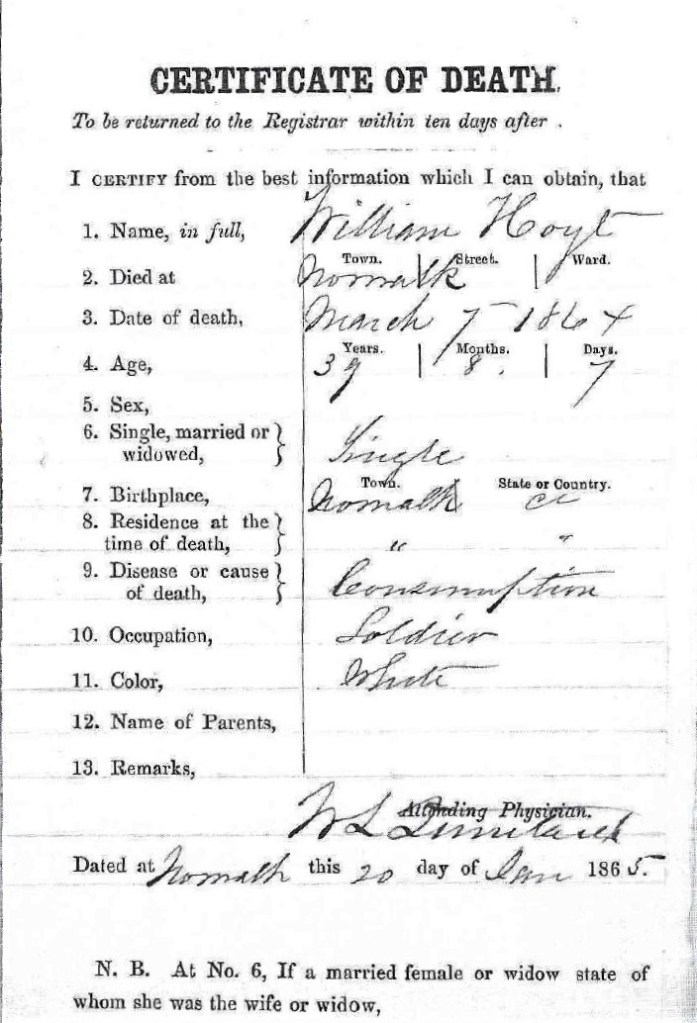 CERTIFICATE OF DEATH.
To be returned to the Registrar within ten days after .
I CERTIFY from the best information which I can obtain, that
1. Name, in full, William Hoyt
Town. Street. Ward.
2. Died at Norwalk
3. Date of death, March 7 - 1864
Years. Months. Days.
4. Age, 39 8. 7
5. Sex,
6. Single, married or
widowed, } Single
Town. State or Country.
7. Birthplace, Norwalk Ct
8. Residence at the
time of death, } " "
9. Disease or cause
of death, } Consumption
10. Occupation, Soldier
11. Color, White
12. Name of Parents,
13. Remarks,
Attending Physician.
W L
Dated at Norwalk this 20 day of Jan 1865.
N. B. At No. 6, If a married female or widow state of
whom she was the wife or widow,